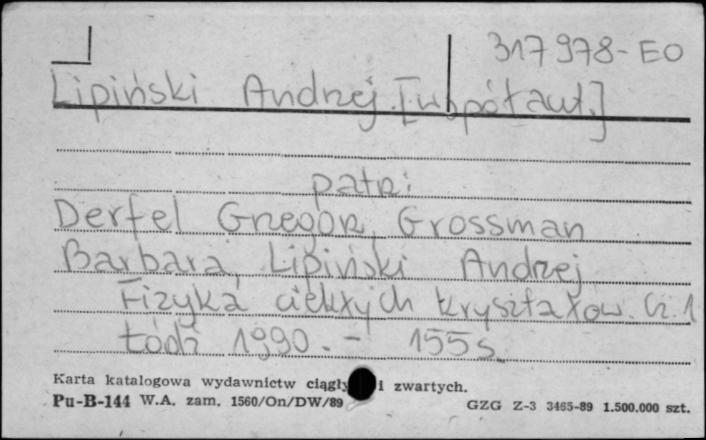 317978-EO
Lipiński Andrzej [współaut.]
patrz:
Derfel Grzegorz, Grossman
Barbara, Lipiński Andrzej
Fizyka ciekłych kryształów. Cz. 1
Łódź 1990. - 155 s.
Karta katalogowa wydawnictw ciągły i zwartych.
Pu-B-144 W.A. zam. 1560/On/DW/89
GZG Z-3 3465-89 1.500.000 szt.